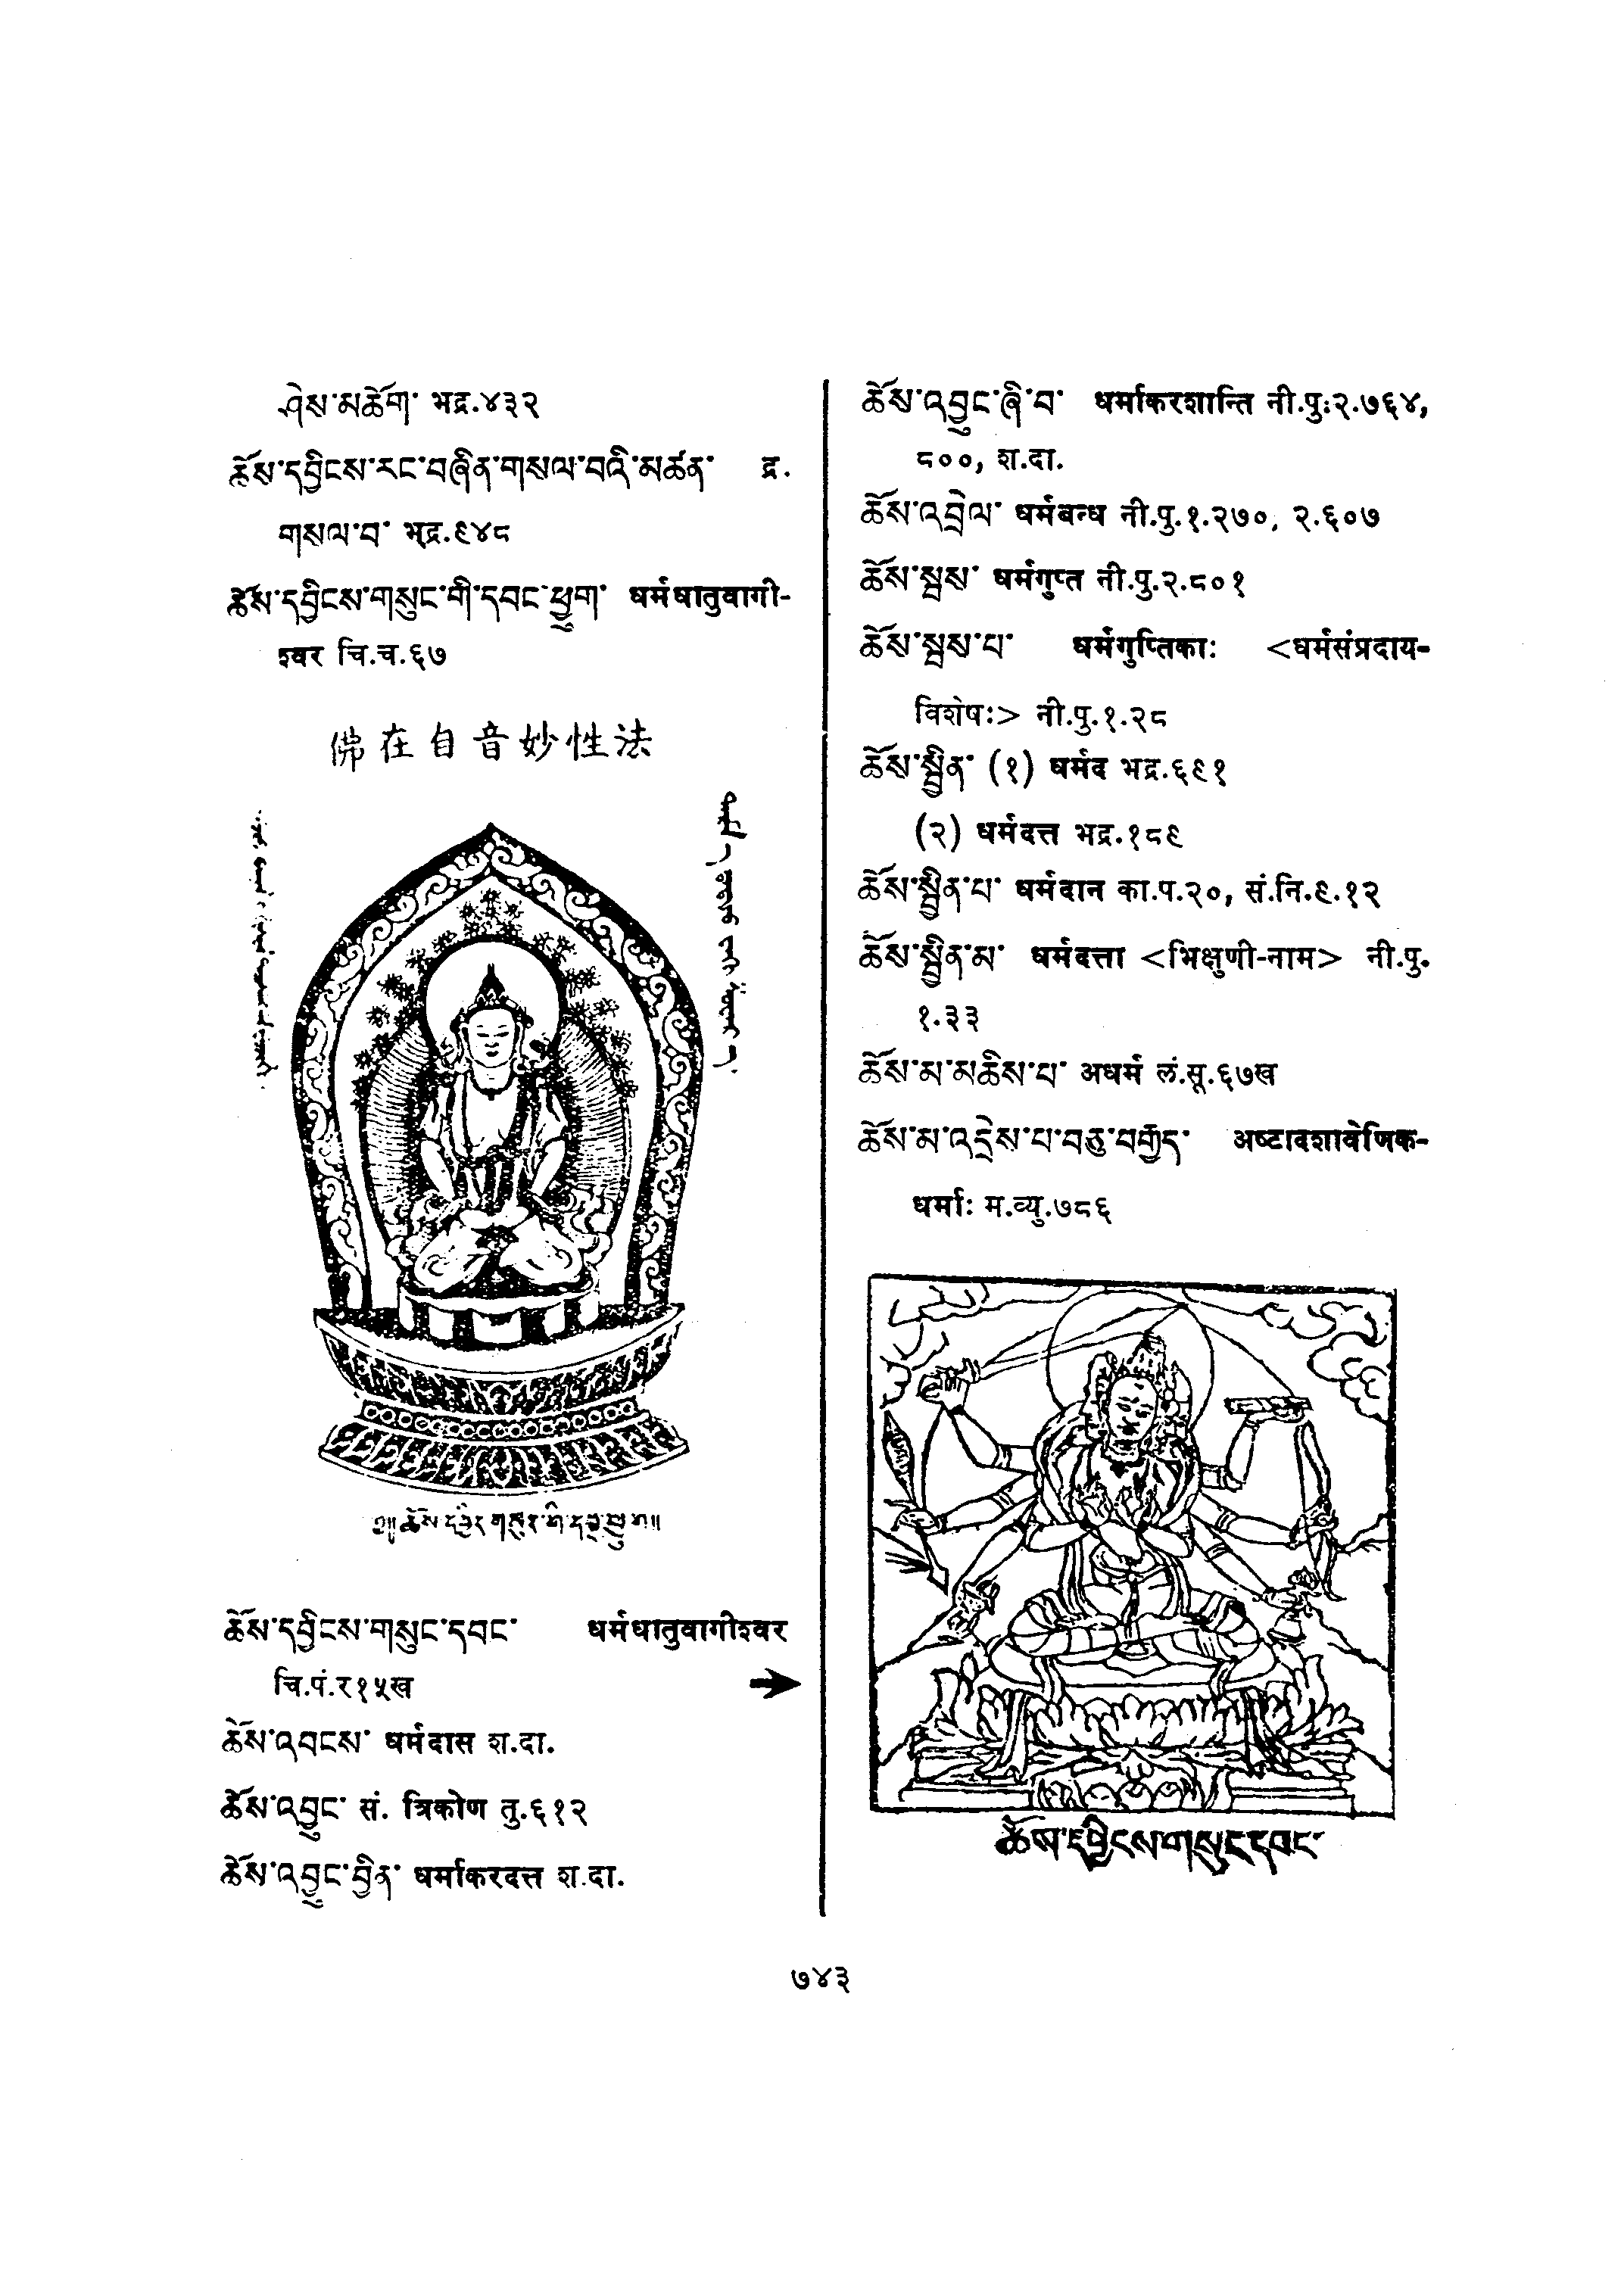 ཤེས་མཆོག་ भद्र.४३२
ཆོས་དབྱིངས་རང་བཞིན་གསལ་བའི་མཚན་ द्र.
གསལ་བ་ भद्र.९४८
ཆོས་དབྱིངས་གསུང་གི་དབང་ཕྱུག་ धर्मधातुवागी-
श्वर चि.च.६७
佛在自音妙性法
༄༅།། ཆོས་དབྱིངས་གསུང་གི་དབང་ཕྱུག།།
ཆོས་དབྱིངས་གསུང་དབང་ धर्मधातुवागीश्वर
चि.पं.र१५ख
ཆོས་འབངས་ धर्मदास श.दा.
ཆོས་འབྱུང་ सं. त्रिकोण तु.६१२
ཆོས་འབྱུང་བྱིན་ धर्माकरदत्त श.दा.
ཆོས་འབྱུང་ཞི་བ་ धर्माकरशान्ति नी.पुः२.७६४,
८००, श.दा.
ཆོས་འབྲེལ་ धर्मबन्ध नी.पु.१.२७०, २.६०७
ཆོས་སྦས་ धर्मगुप्त नी.पु.२.८०१
ཆོས་སྦས་པ་ धर्मगुप्तिकाः <धर्मसंप्रदाय-
विशेषः> नी.पु.१.२८
ཆོས་སྦྱིན་ (१) धर्मद भद्र.६९१
(२) धर्मदत्त भद्र.१८९
ཆོས་སྦྱིན་པ་ धर्मदान का.प.२०, सं.नि.९.१२
ཆོས་སྦྱིན་མ་ धर्मदत्ता <भिक्षुणी-नाम> नी.पु.
१.३३
ཆོས་མ་མཆིས་པ་ अधर्म लं.सू.६७ख
ཆོས་མ་འདྲེས་པ་བཅུ་བརྒྱད་ अष्टादशावेणिक-
धर्माः म.व्यु.७८६
ཆོས་དབྱིངས་གསུང་དབང་
७४३